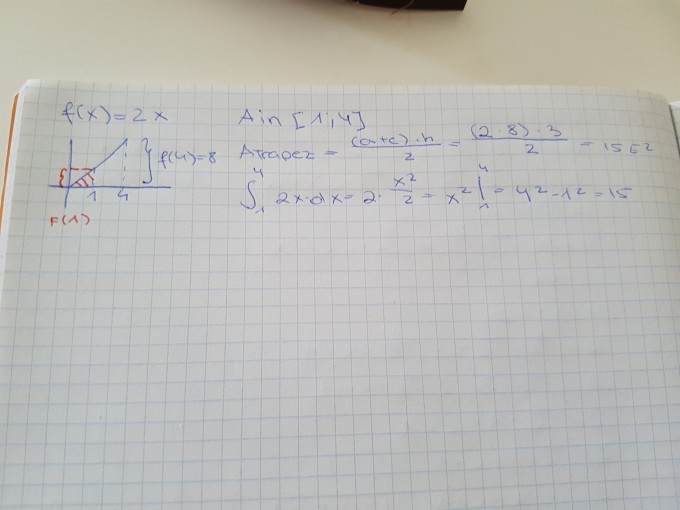 f(x)=2x
A in [1,4]
f(4)=8
1 4
F(1)
ATrapez = (a+c)·h / 2 = (2·8)·3 / 2 = 15 E2
∫₁⁴ 2x·dx = 2· x²/2 = x² |₁⁴ = 4² - 1² = 15